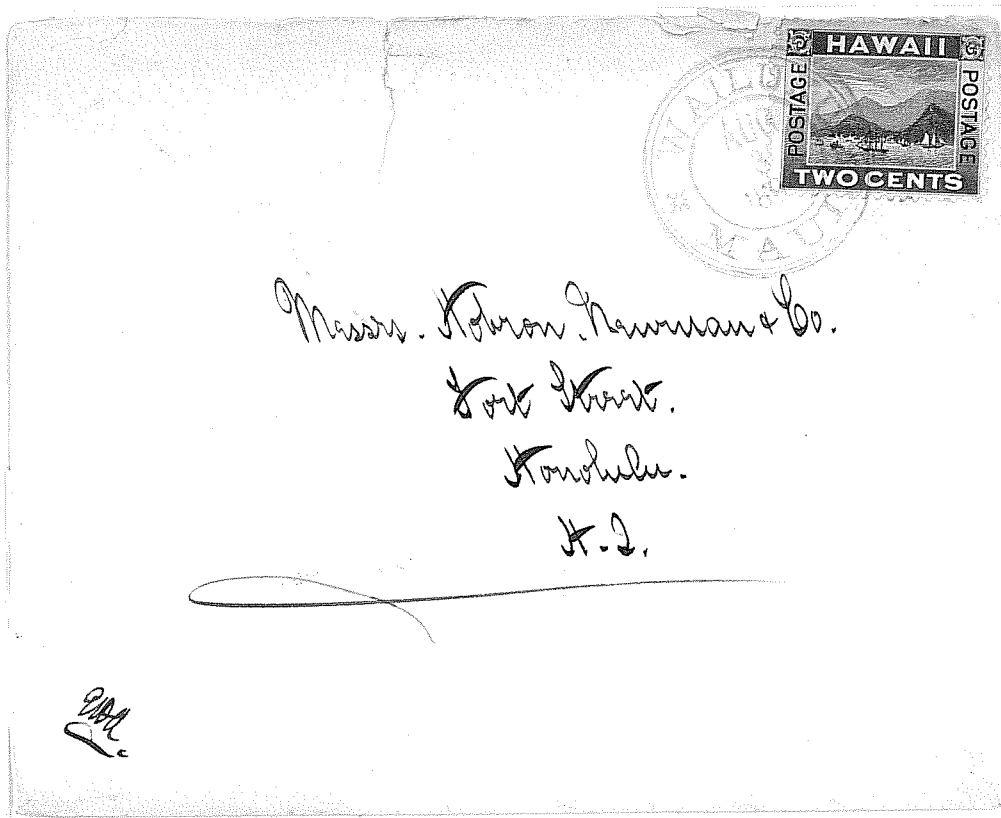 HAWAII
POSTAGE
POSTAGE
TWO CENTS
MAUI
Messrs. Hobron, Newman & Co.
Fort Street.
Honolulu.
H.I.